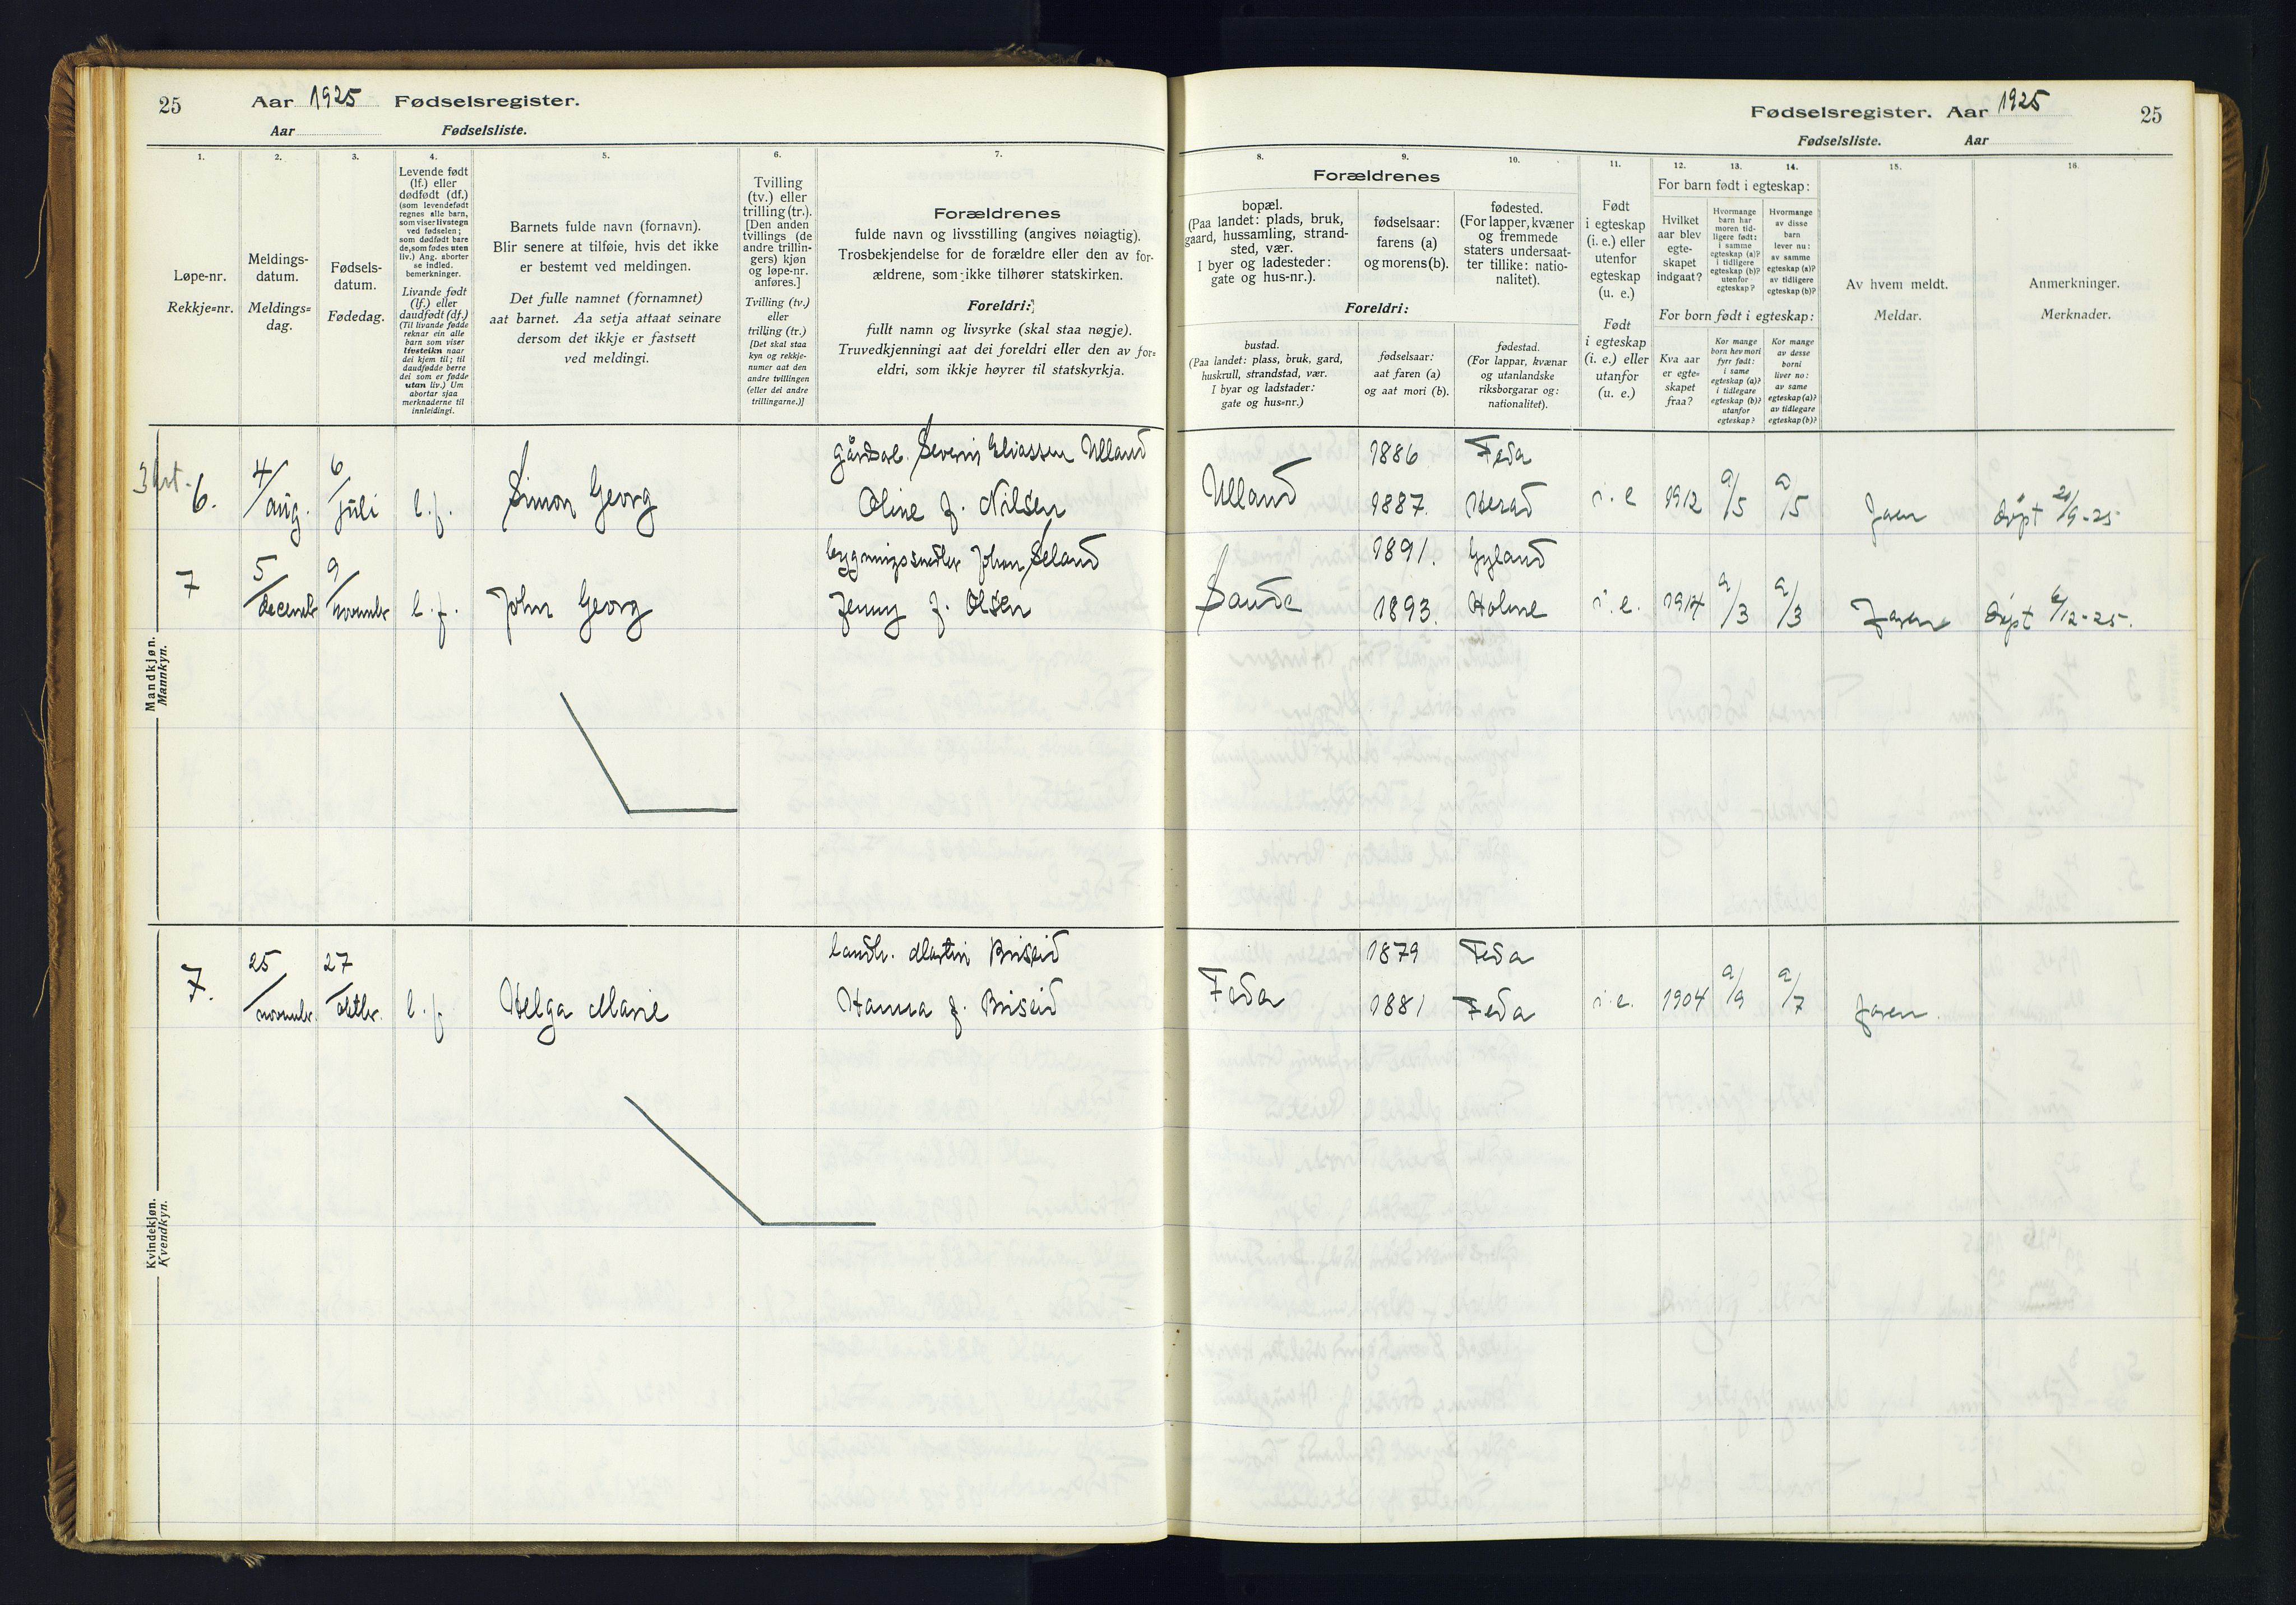 25 Aar 1925 Fødselsregister.
Aar Fødselsliste.
1.
Løpe-nr.
Rekkje=nr.
2.
Meldings-
datum.
Meldings=
dag.
3.
Fødsels-
datum.
Fødedag.
4.
Levende født
(lf.) eller
dødfødt (df.)
(som levendefødt
regnes alle barn,
som viser livstegn
ved fødselen;
som dødfødt bare
de, som fødes uten
liv.) Ang. aborter
se indled.
bemerkninger.
Livande født
(lf.) eller
daudfødt (df.)
(Til livande fødde
reknar ein alle
barn som viser
livsteikn naar
dei kjem til; til
daudfødde berre
dei som er fødde
utan liv.) Um
abortar sjaa
merknaderne til
innleidingi.
5.
Barnets fulde navn (fornavn).
Blir senere at tilføie, hvis det ikke
er bestemt ved meldingen.
Det fulle namnet (fornamnet)
aat barnet. Aa setja attaat seinare
dersom det ikkje er fastsett
ved meldingi.
6.
Tvilling
(tv.) eller
trilling (tr.).
[Den anden
tvillings (de
andre trillin-
gers) kjøn
og løpe-nr.
anføres.]
Tvilling (tv.)
eller
trilling (tr.)
[Det skal staa
kyn og rekkje-
numer aat den
andre tvillingen
(eller dei andre
trillingarne.)]
7.
Forældrenes
fulde navn og livsstilling (angives nøiagtig).
Trosbekjendelse for de forældre eller den av for-
ældrene, som ikke tilhører statskirken.
Foreldri:
fullt namn og livsyrke (skal staa nøgje).
Truvedkjenningi aat dei foreldri eller den av for=
eldri, som ikkje høyrer til statskyrkja.
Mandkjøn.
Mannkyn.
gårdbr. Severin Eliassen Ulland
6. 4/aug. 6/juli l.f. Simon Georg Oline f. Nilsen
bygningssnedker Johan Seland
7 5/decembr 9/novembr l.f. John Georg Jenny f. Olsen
Kvindekjøn.
Kvendkyn.
landh. Martin Briseid
7. 25/novembr. 27/oktbr. l.f. Helga Marie Hanna f. Briseid
Fødselsregister. Aar 1925 25
Fødselsliste. Aar
Forældrenes
8.
bopæl.
(Paa landet: plads, bruk,
gaard, hussamling, strand-
sted, vær.
I byer og ladesteder:
gate og hus-nr.).
9.
fødselsaar:
farens (a)
og morens (b).
10.
fødested.
(For lapper, kvæner
og fremmede
staters undersaat-
ter tillike: natio-
nalitet).
Foreldri:
bustad.
(Paa landet: plass, bruk, gard,
huskrull, strandstad, vær.
I byar og ladstader:
gate og hus=nr.)
fødselsaar:
aat faren (a)
og aat mori (b).
fødestad.
(For lappar, kvænar
og utanlandske
riksborgarar og:
nationalitet).
11.
Født
i egteskap
(i. e.) eller
utenfor
egteskap
(u. e.)
Født
i egteskap
(i. e.) eller
utanfor
(u. e.)
12. 13. 14.
For barn født i egteskap:
Hvilket
aar blev
egte-
skapet
indgaat?
Hvormange
barn har
moren tid-
ligere født:
i samme
egteskap (a)?
i tidligere
egteskap (b)?
utenfor
egteskap?
Hvormange
av disse
barn
lever nu:
av samme
egteskap (a)?
av tidligere
egteskap (b)?
For born født i egteskap:
Kva aar
er egte=
skapet
fraa?
Kor mange
born hev mori
fyrr født:
i same
egteskap (a)?
i tidlegare
egteskap (b)?
utanfor
egteskap?
Kor mange
av desse
borni
liver no:
av same
egteskap (a)?
av tidlegare
egteskap (b)?
15.
Av hvem meldt.
Meldar.
16.
Anmerkninger.
Merknader.
1886 Feda
Ulland 1887. Herad i. e 1912 a/5 a/5 Faren døpt 20/9-25
1891. Gyland
Sande 1893. Holme i. e. 1914 a/3 a/3 Faren døpt 6/12-25.
1879 Feda
Feda 1881 Feda i. e. 1904 a/9 a/7 Faren.